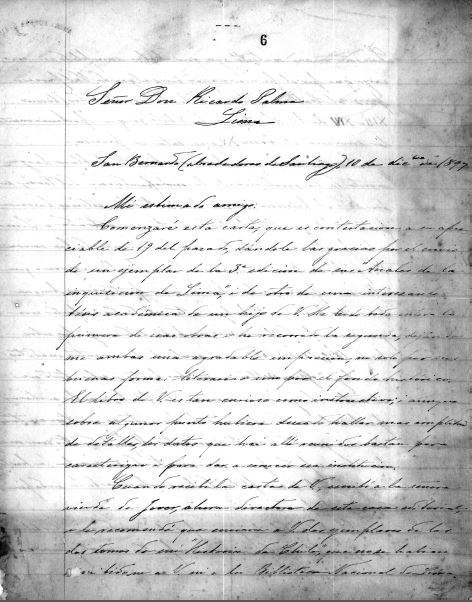 6
Señor Don Ricardo Palma
Lima
San Bernardo (alrededores de Santiago), 10 de dic. de 1897
Mi estimado amigo:
Comenzaré esta carta, que es contestacion a su apre
ciable de 19 del pasado, dándole las gracias por el envio
de un ejemplar de la 3ª edicion de sus "Anales de la
inquisicion de Lima", i de otro de una interesante
tésis académica de un hijo de V. He leido
primera de esas obras i he recorrido la segunda,
me ambas una agradable impresion, no solo por sus
buenas formas literarias sino por el fondo
El libro de V. es tan curioso como instructivo; i aunque
sobre algunos puntos hubiera deseado hallar mas amplitud
de detalles, los datos que hai allí reunidos bastan para
caracterizar i para dar a conocer esa institucion.
Cuando recibí la carta de V., escribí a la señora
viuda de Jover, ahora directora de esta casa editorial,
i le recomendé que enviara a V. dos ejemplares de los
dos tomos de mi "Historia de Chile", que no se habian
a V. ni a la Biblioteca Nacional de Lima.